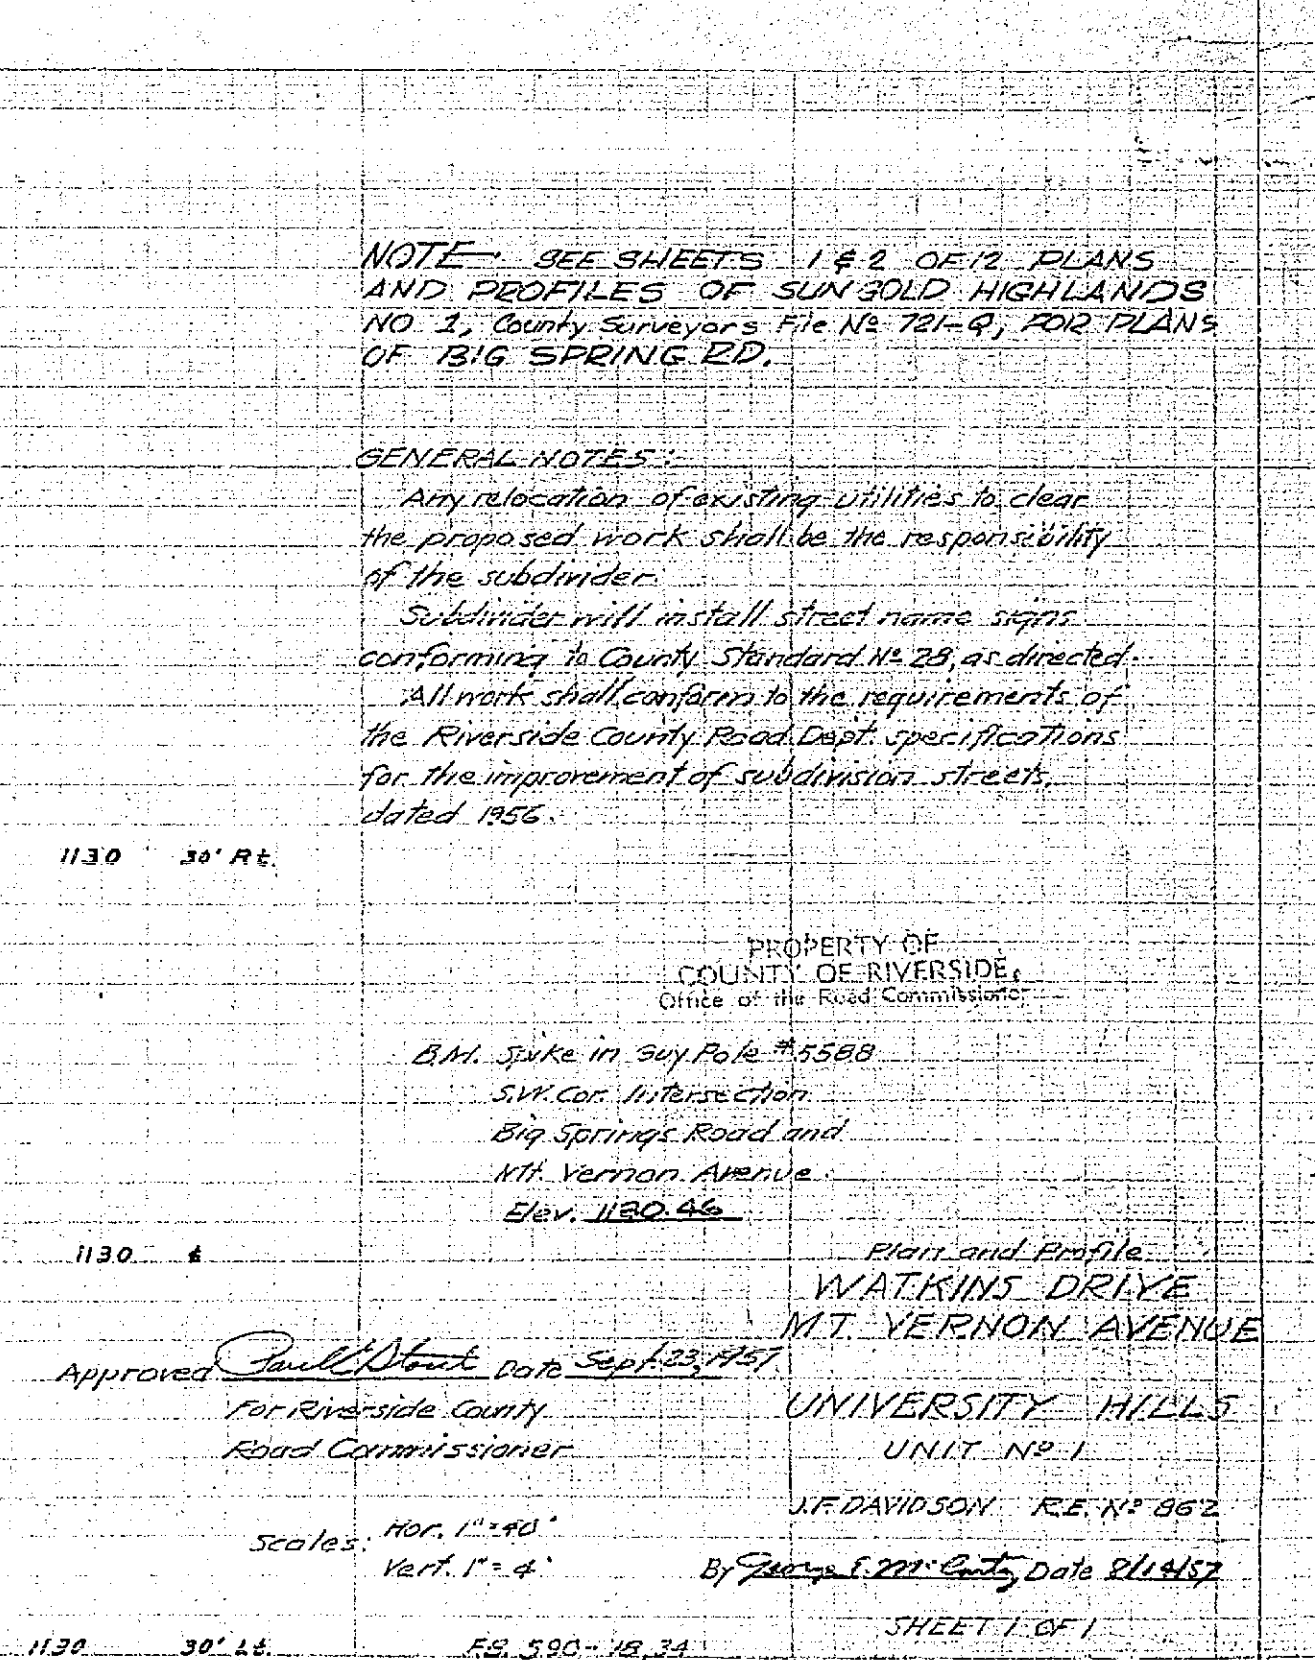 NOTE: SEE SHEETS 1 & 2 OF 12 PLANS
AND PROFILES OF SUNGOLD HIGHLANDS
NO 1, County Surveyors File Nº 721-Q, FOR PLANS
OF BIG SPRING RD.
GENERAL NOTES:
Any relocation of existing utilities to clear
the proposed work shall be the responsibility
of the subdivider.
Subdivider will install street name signs
conforming to County Standard Nº 28, as directed.
All work shall conform to the requirements of
the Riverside County Road Dept. specifications
for the improvement of subdivision streets,
dated 1956.
1130 30' Rt.
PROPERTY OF
COUNTY OF RIVERSIDE,
Office of the Road Commissioner
B.M. Spike in Guy Pole #5588
S.W. Cor. Intersection
Big Springs Road and
Mt. Vernon Avenue.
Elev. 1120.46
1130 ℄
Plan and Profile
WATKINS DRIVE
MT. VERNON AVENUE
Approved Date Sept. 23, 1957
For Riverside County
Road Commissioner
UNIVERSITY HILLS
UNIT Nº 1
J.F. DAVIDSON R.E. Nº 862
Scales: Hor. 1"=40'
Vert. 1"=4'
By George F. Date 8/14/57
SHEET 1 OF 1
1130 30' Lt. F.B. 590-18,34